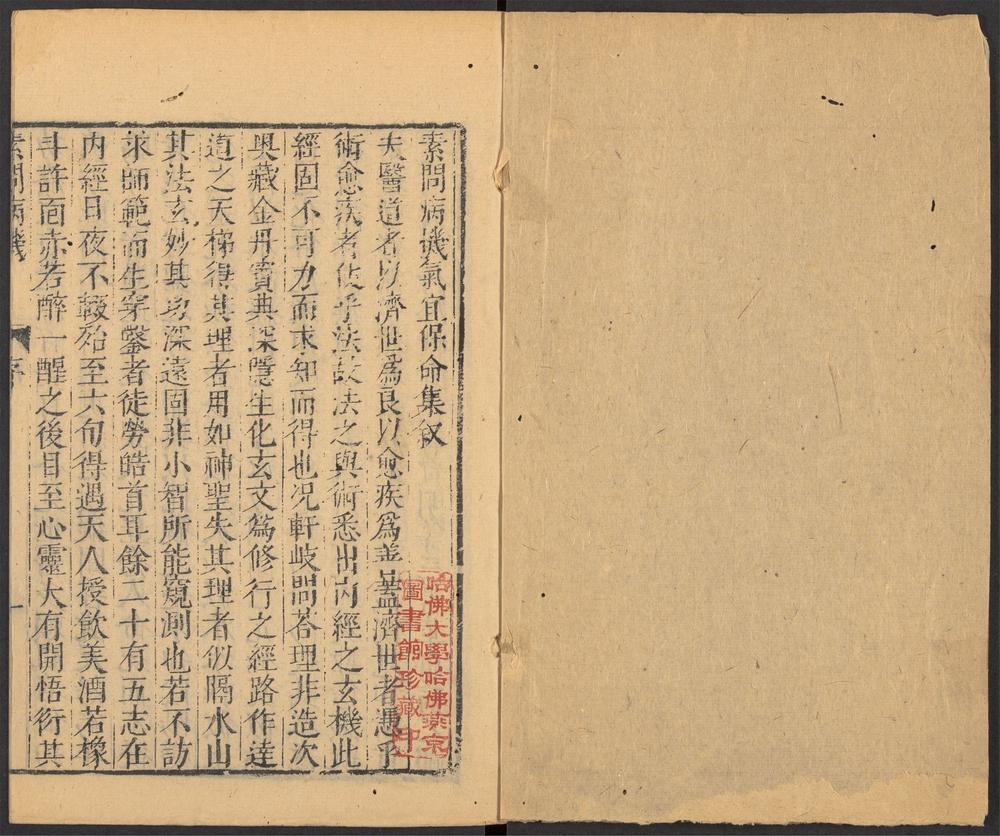 素問病機氣宜保命集叙
夫醫道者以濟世爲良以愈疾爲善蓋濟世者憑乎
術愈疾者仗乎法故法之與術悉出内經之玄機此
經固不可力而求知而得也况軒岐問荅理非造次
奥藏金丹寳典深隱生化玄文爲修行之經路作逹
道之天梯得其理者用如神聖失其理者似隔水山
其法玄妙其功深遠固非小智所能窺測也若不訪
求師範而生穿鑿者徒勞皓首耳餘二十有五志在
内經日夜不輟殆至六旬得遇天人授飲美酒若橡
斗許面赤若醉一醒之後目至心靈大有開悟衍其
素問病機
序
一
哈佛大學哈佛燕京
圖書館珍藏印